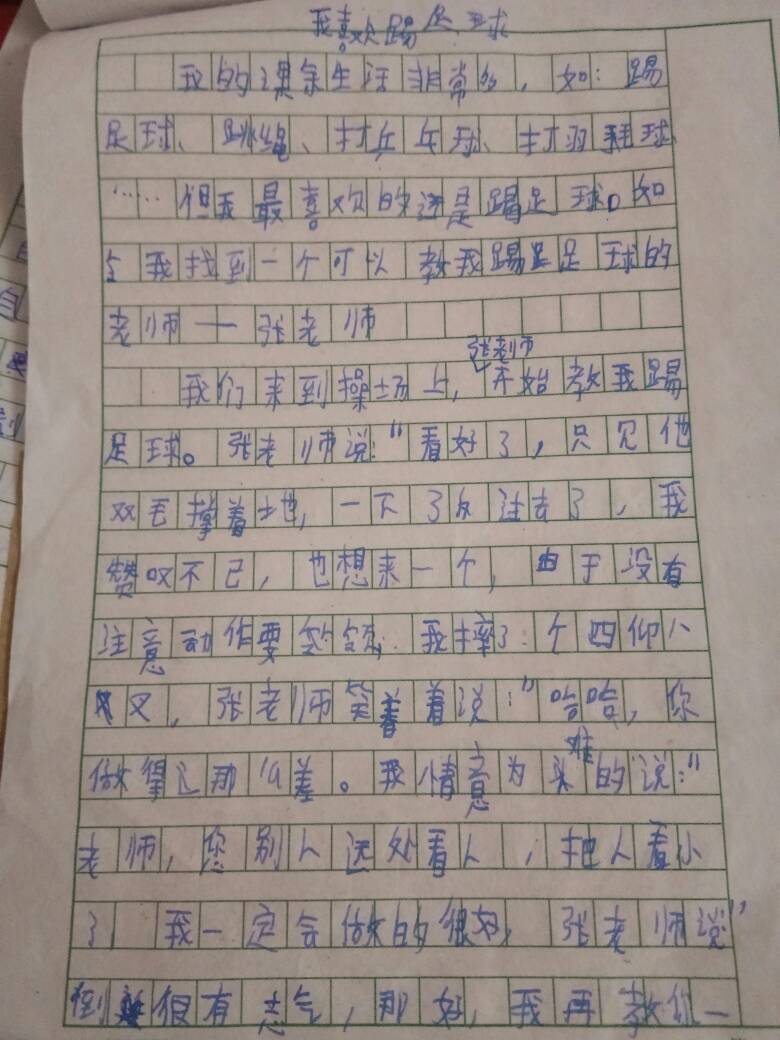 我喜欢踢足球
我的课余生活非常的，如：踢
足球、跳绳、打乒乓球、打羽毛球
……但我最喜欢的还是踢足球。如
今我找到一个可以教我踢足足球的
老师一张老师
张老师
我们来到操场上，开始教我踢
足球。张老师说："看好了，只见他
双毛撑着地，一下了反过去了，我
赞叹不已，也想来一个，由于没有
注意动作要领，我摔了个四仰八
叉，张老师笑着着说："哈哈，你
做得这那么差。我情意为难的说："
老师，您别人远处看人，把人看小
了，我一定会做的很好，张老师说"
倒很有志气，那好，我再教你一